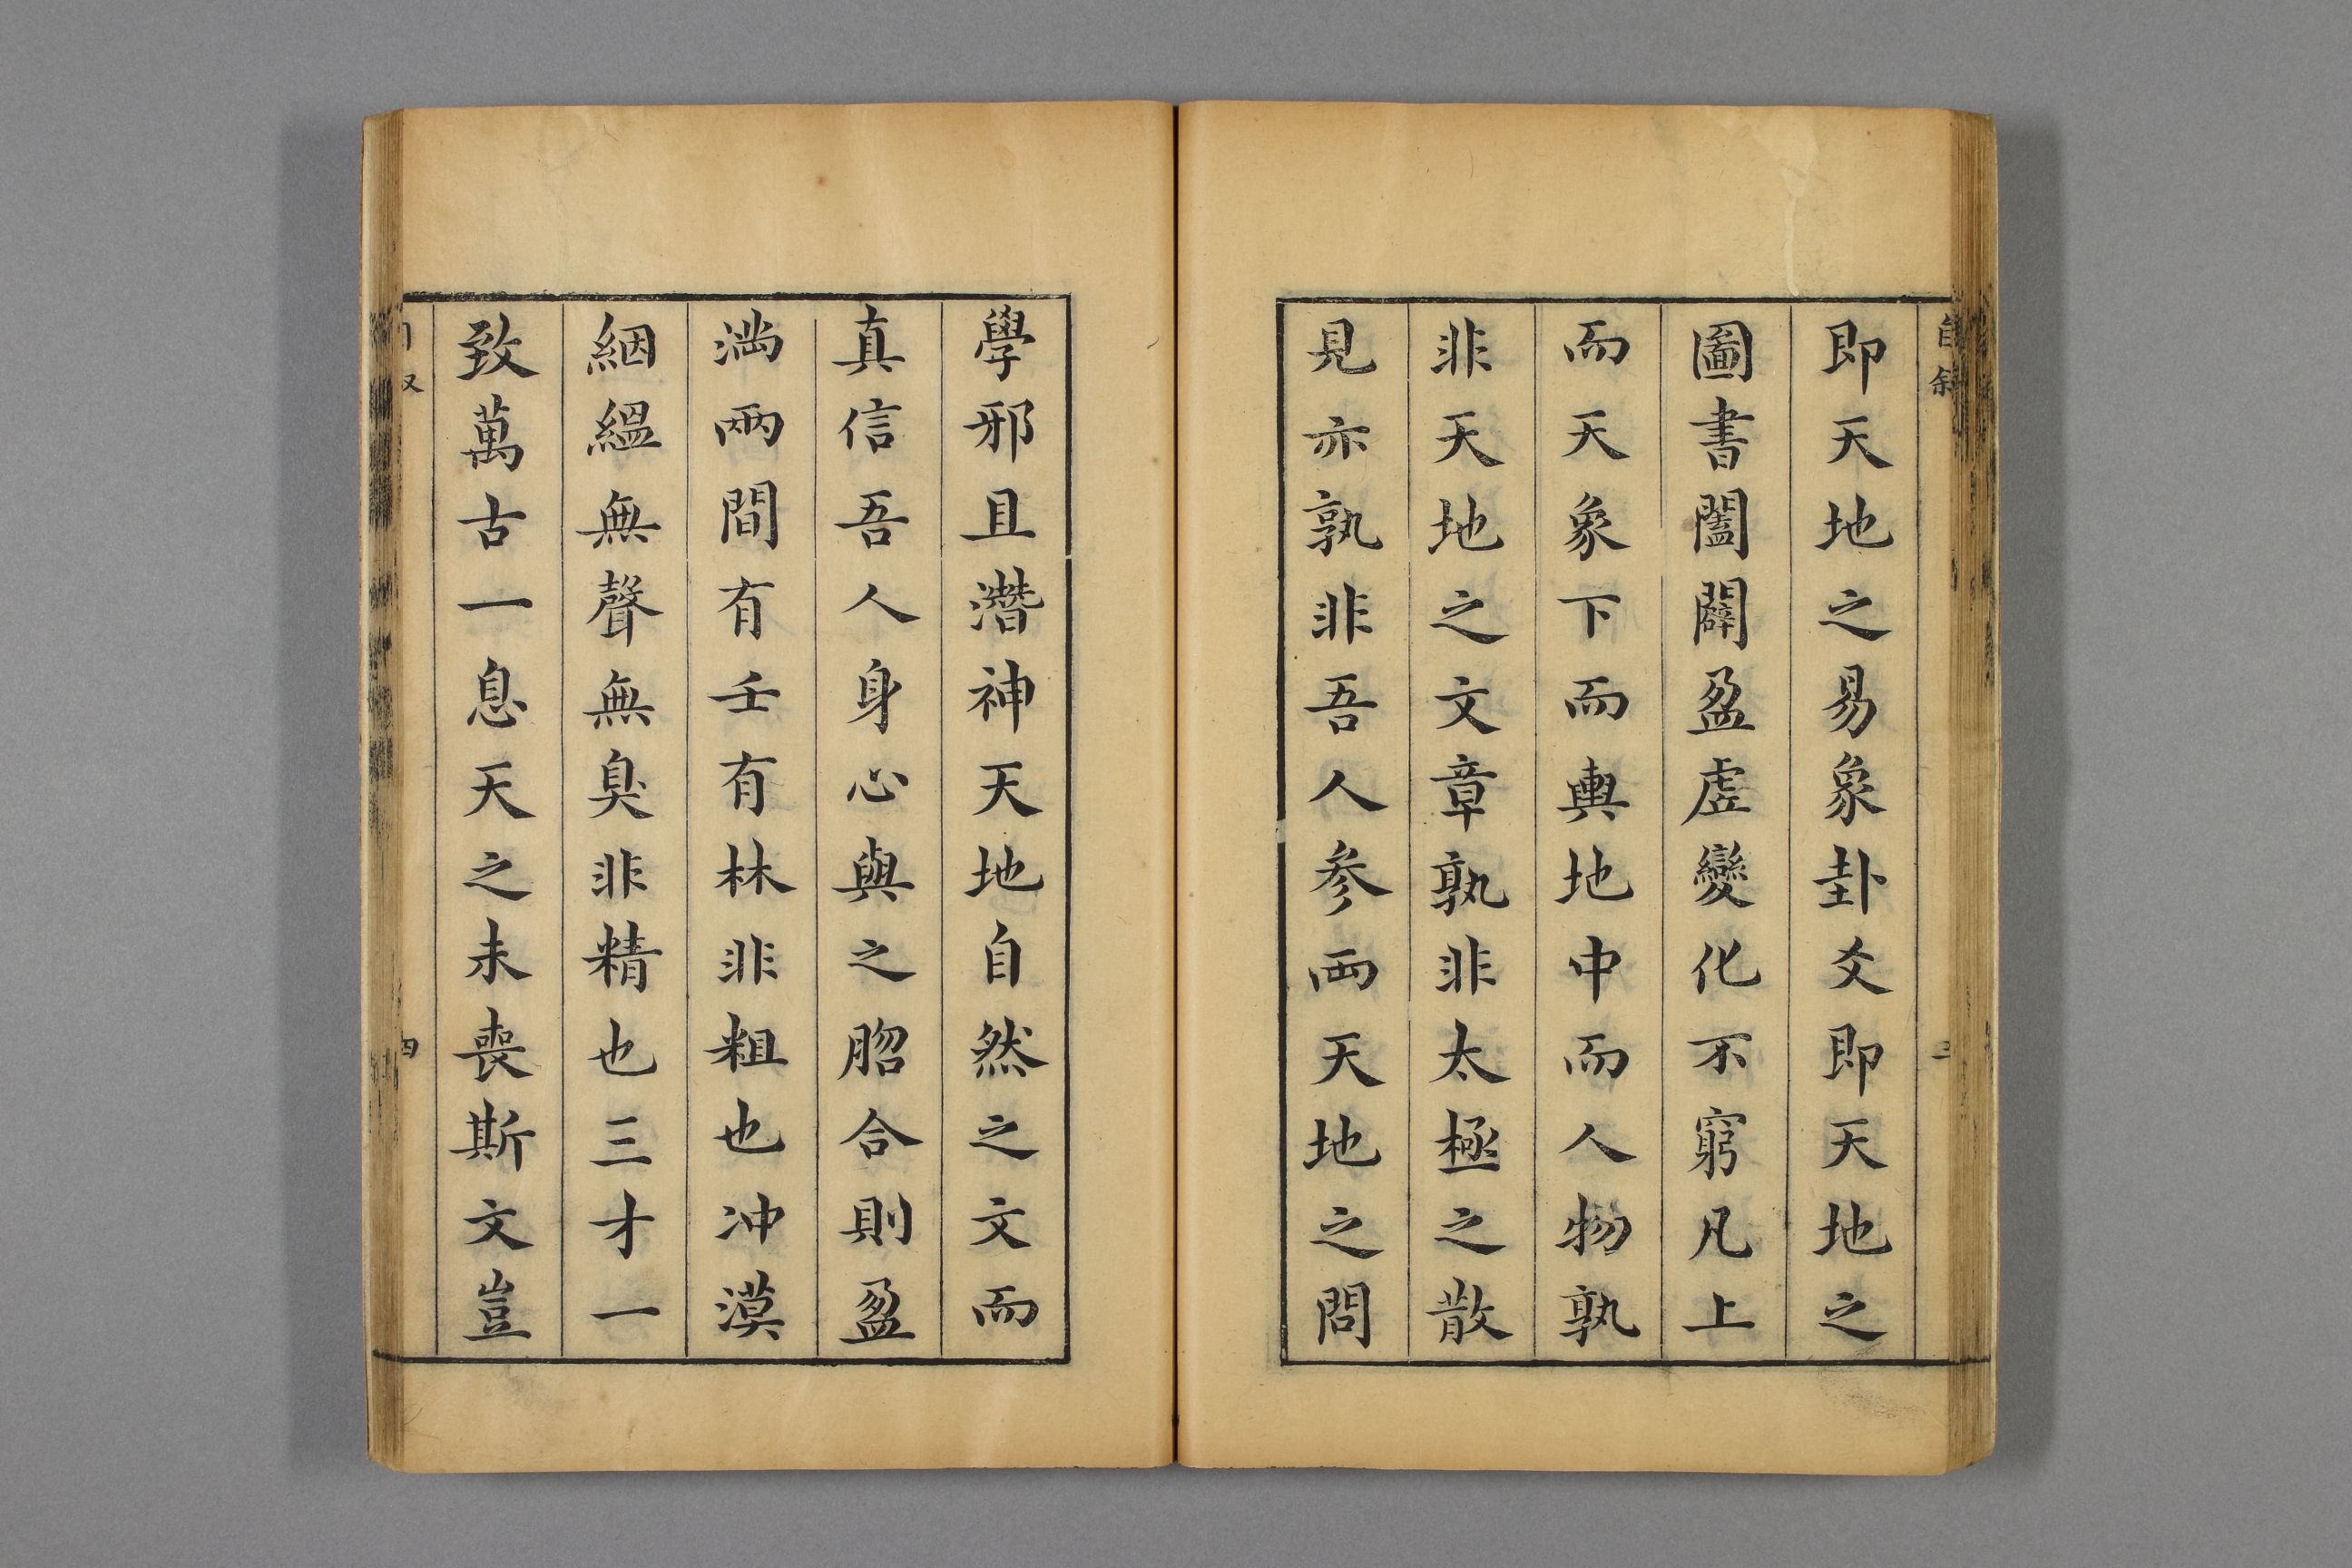 自叙
三
即天地之易象卦爻即天地之
圖書闔闢盈虛變化不窮凡上
而天象下而輿地中而人物孰
非天地之文章孰非太極之散
見亦孰非吾人參兩天地之問
學邪且潛神天地自然之文而
真信吾人身心與之脗合則盈
滿兩間有壬有林非粗也冲漠
絪縕無聲無臭非精也三才一
致萬古一息天之未喪斯文豈
四